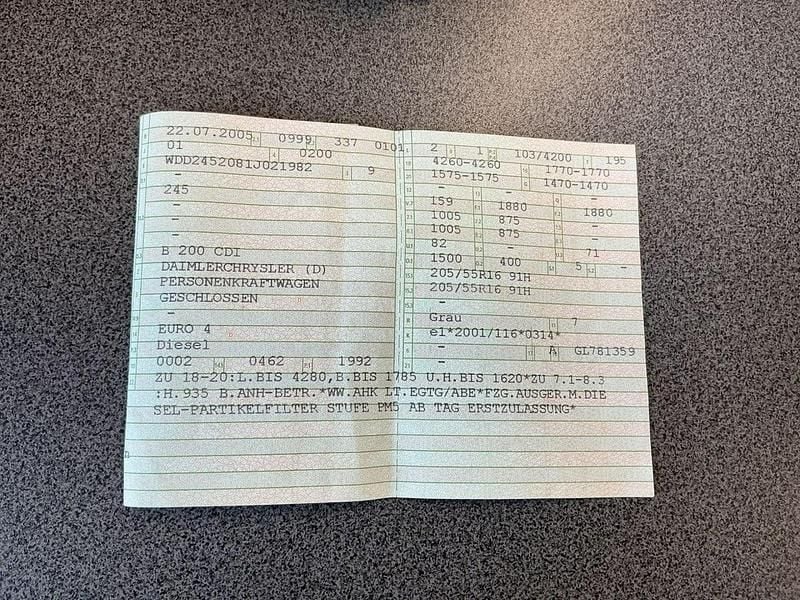 22.07.2005 0999 337 0101
01 0200
WDD2452081J021982 9
-
245
-
-
-
B 200 CDI
DAIMLERCHRYSLER (D)
PERSONENKRAFTWAGEN
GESCHLOSSEN
-
EURO 4
Diesel
0002 0462 1992
2 1 103/4200 195
4260-4260 1770-1770
1575-1575 1470-1470
- - -
159 1880 1880
1005 875 -
1005 875 -
82 - 71
1500 400 5 -
205/55R16 91H
205/55R16 91H
-
Grau 7
e1*2001/116*0314*
- - A GL781359
-
ZU 18-20:L.BIS 4280,B.BIS 1785 U.H.BIS 1620*ZU 7.1-8.3
:H.935 B.ANH-BETR.*WW.AHK LT.EGTG/ABE*FZG.AUSGER.M.DIE
SEL-PARTIKELFILTER STUFE PM5 AB TAG ERSTZULASSUNG*